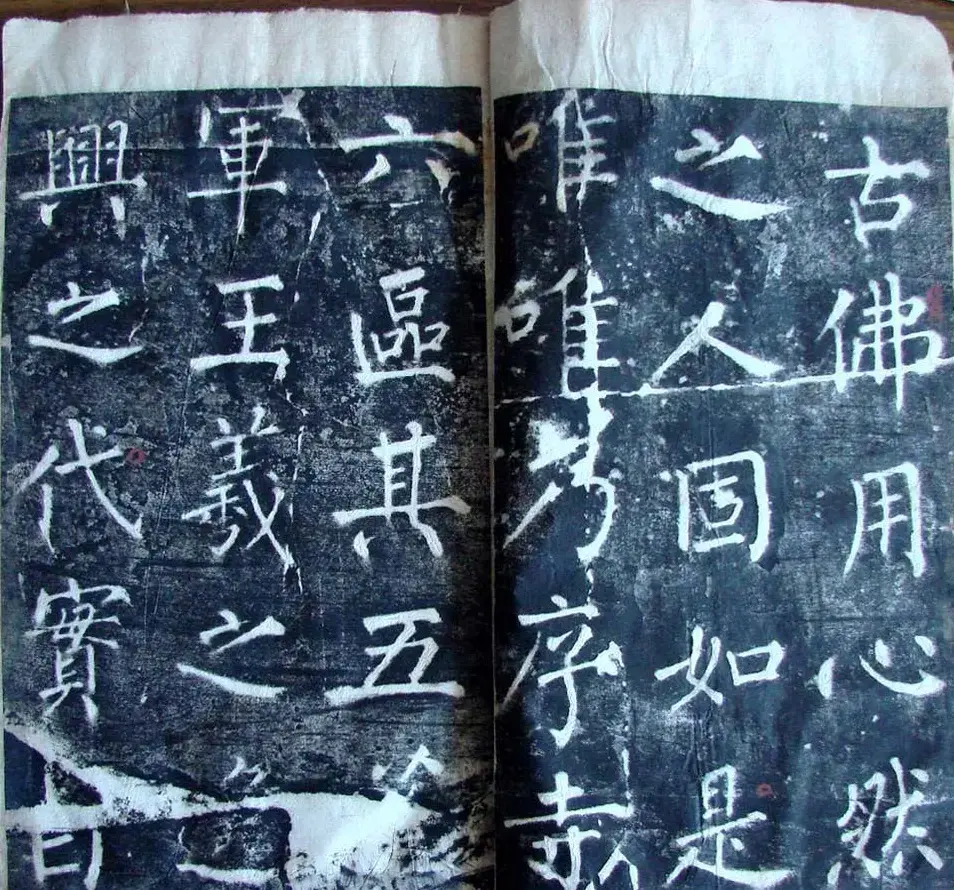 古佛用心然
之人固如是
唯唯序
六區其五
軍王羲之
興之代實